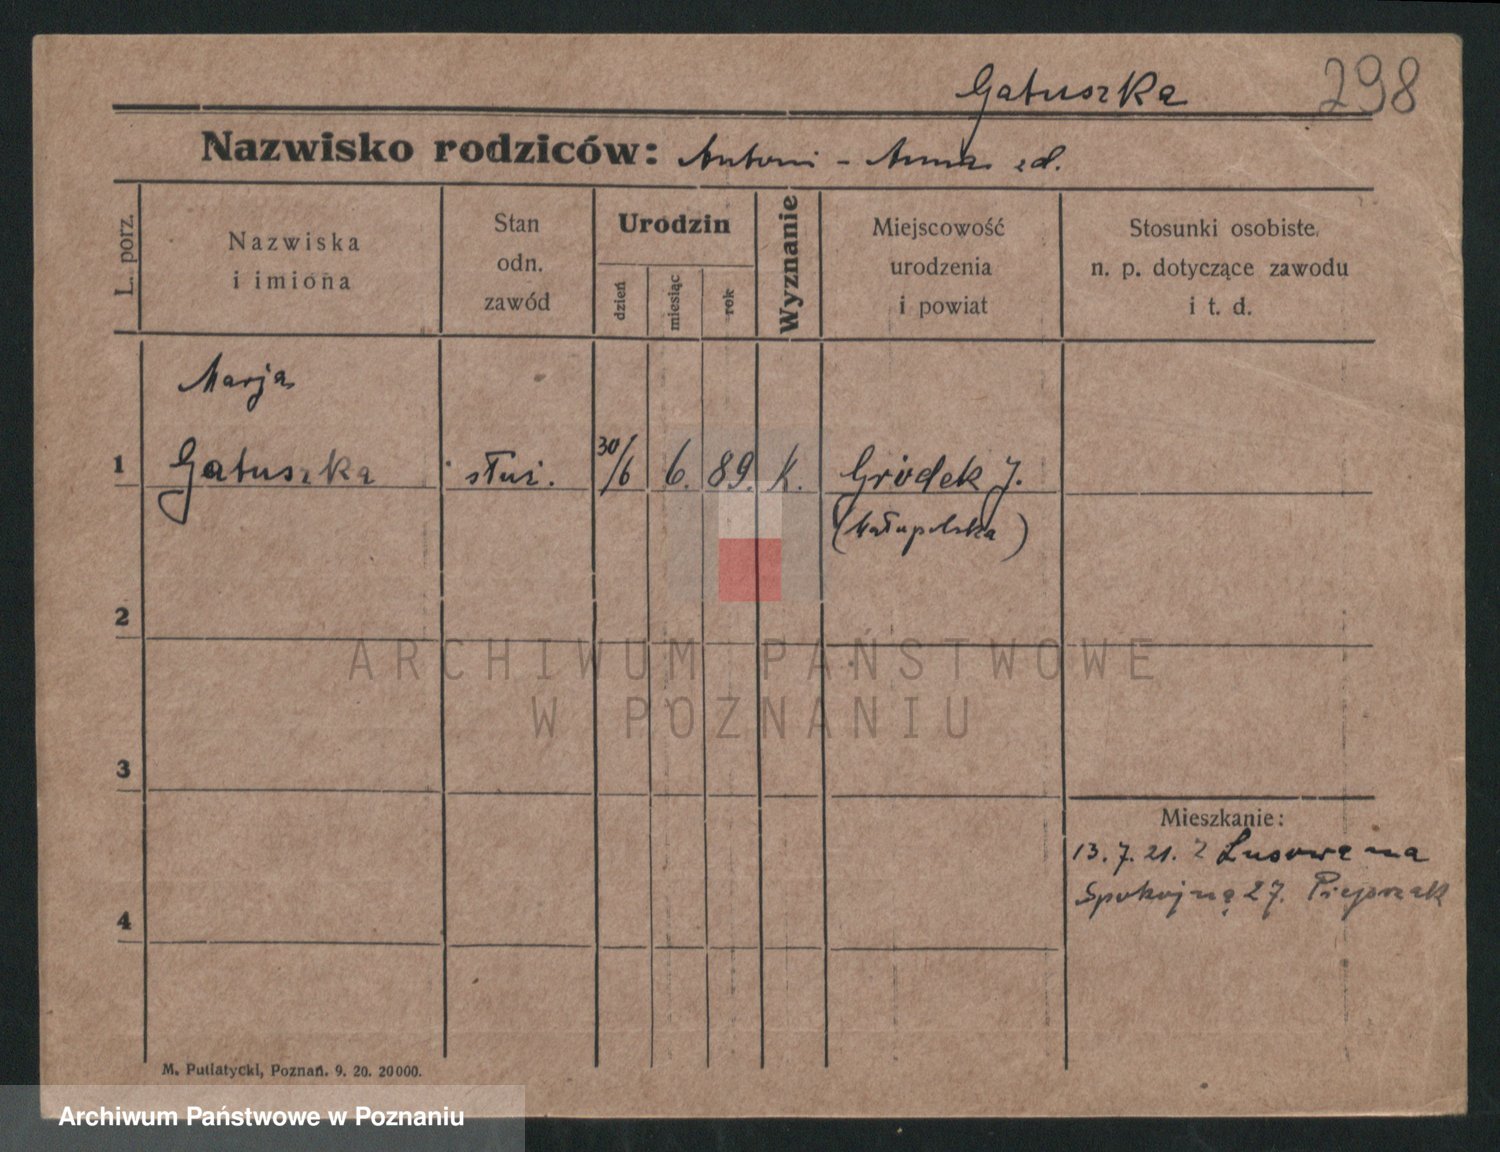 Gatuszka 298
Nazwisko rodziców: Antoni - Anna zd.
L. porz.
Nazwiska
i imiona
Stan
odn.
zawód
Urodzin
dzień
miesiąc
rok
Wyznanie
Miejscowość
urodzenia
i powiat
Stosunki osobiste,
n. p. dotyczące zawodu
i t. d.
Marja
1 Gatuszka służ. 30/6 6. 89. K. Gródek J.
(Małopolska)
2
ARCHIWUM PAŃSTWOWE
W POZNANIU
3
Mieszkanie:
13. 7. 21. Z Lusowa na
Spokojną 27. Piejprzak
4
M. Putiatycki, Poznań. 9. 20. 20000.
Archiwum Państwowe w Poznaniu